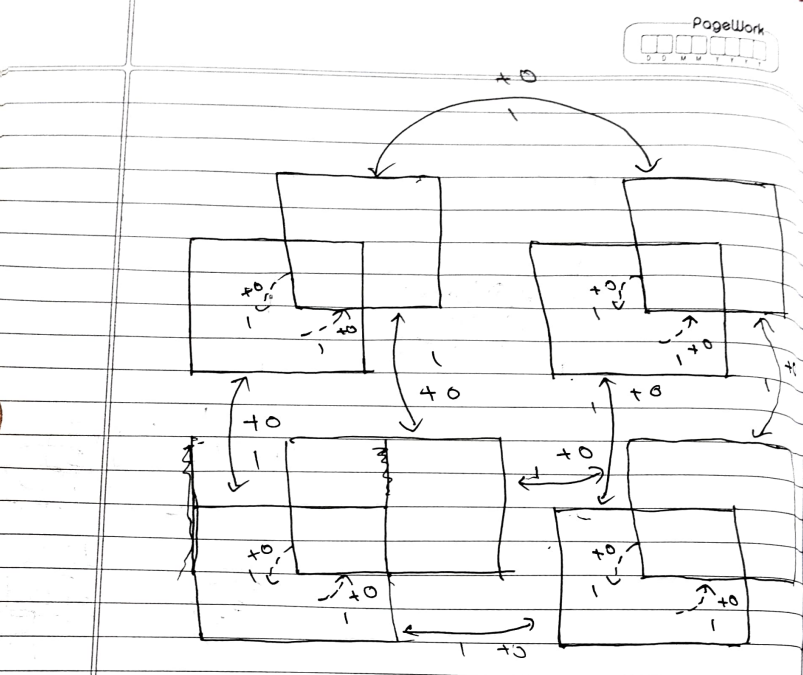 PageWork
D D M M Y Y Y Y
+0
1
+0
1
+0
1
+0
1
1
+0
+
1
1
+0
1
+0
+0
1
+0
1
+0
1
+0
1
+0
1
+0
1
1 +0